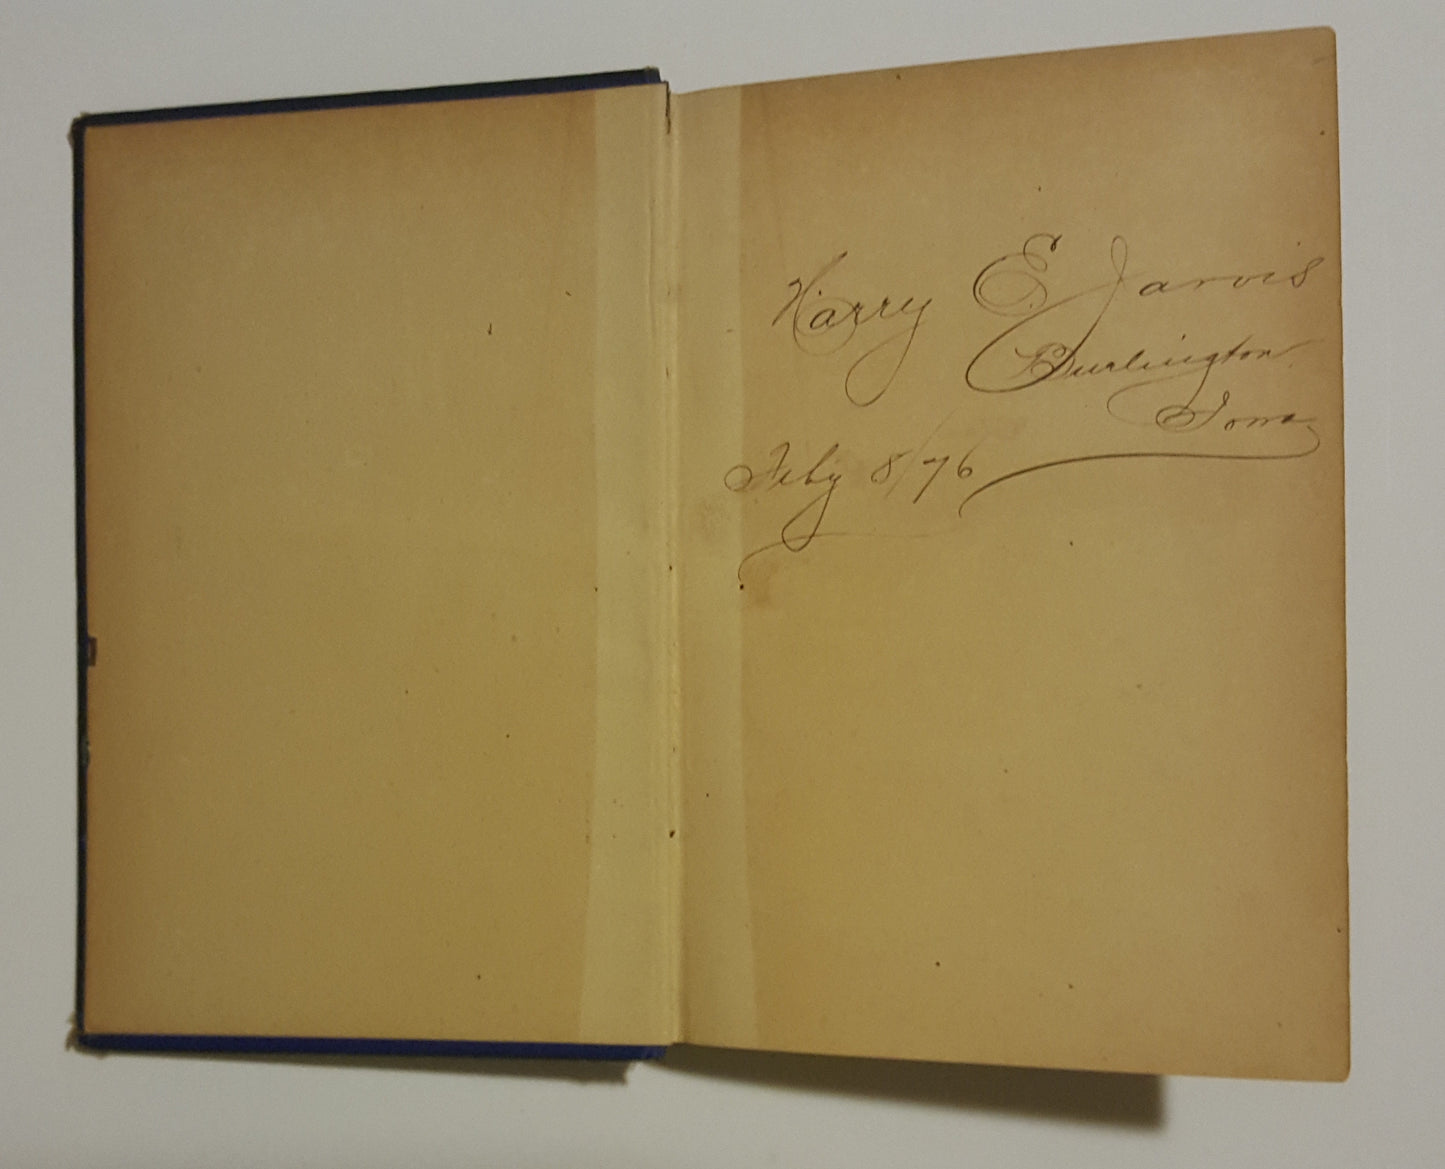 Harry E. Jarvis
Burlington
Iowa
Feby 8/76